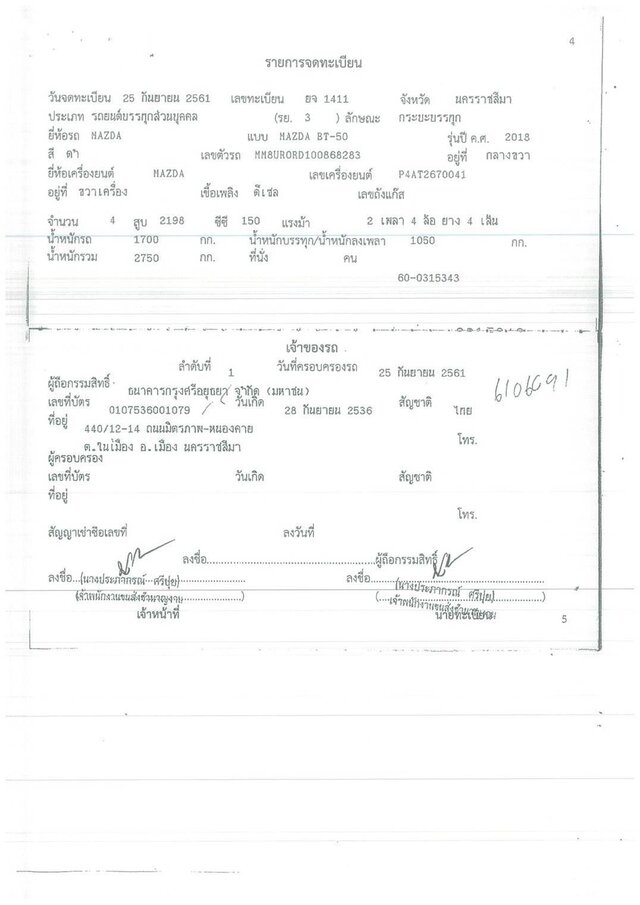 4
รายการจดทะเบียน
วันจดทะเบียน 25 กันยายน 2561 เลขทะเบียน ยจ 1411 จังหวัด นครราชสีมา
ประเภท รถยนต์บรรทุกส่วนบุคคล (รย. 3 ) ลักษณะ กระบะบรรทุก
ยี่ห้อรถ MAZDA แบบ MAZDA BT-50 รุ่นปี ค.ศ. 2018
สี ดำ เลขตัวรถ MM8URORD100868283 อยู่ที่ กลางขวา
ยี่ห้อเครื่องยนต์ MAZDA เลขเครื่องยนต์ P4AT2670041
อยู่ที่ ขวาเครื่อง เชื้อเพลิง ดีเซล เลขถังแก๊ส
จำนวน 4 สูบ 2198 ซีซี 150 แรงม้า 2 เพลา 4 ล้อ ยาง 4 เส้น
น้ำหนักรถ 1700 กก. น้ำหนักบรรทุก/น้ำหนักลงเพลา 1050 กก.
น้ำหนักรวม 2750 กก. ที่นั่ง คน
60-0315343
เจ้าของรถ
ลำดับที่ 1 วันที่ครอบครองรถ 25 กันยายน 2561
ผู้ถือกรรมสิทธิ์ ธนาคารกรุงศรีอยุธยา จำกัด (มหาชน) 6106691
เลขที่บัตร 0107536001079 วันเกิด 28 กันยายน 2536 สัญชาติ ไทย
ที่อยู่ 440/12-14 ถนนมิตรภาพ-หนองคาย
ต.ในเมือง อ.เมือง นครราชสีมา โทร.
ผู้ครอบครอง
เลขที่บัตร วันเกิด สัญชาติ
ที่อยู่
โทร.
สัญญาเช่าซื้อเลขที่ ลงวันที่
ลงชื่อ ผู้ถือกรรมสิทธิ์
ลงชื่อ (นางประภากรณ์ ศรีปุย) ลงชื่อ (นางประภากรณ์ ศรีปุย)
(เจ้าพนักงานขนส่งชำนาญงาน) (เจ้าพนักงานขนส่งชำนาญงาน)
เจ้าหน้าที่ นายทะเบียน 5